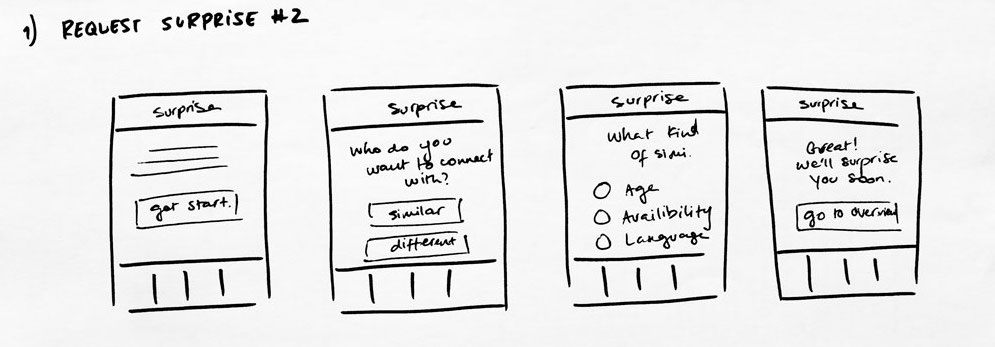 1) REQUEST SURPRISE #2
surprise
get start.
surprise
who do you
want to connect
with?
similar
different
surprise
What kind
of simi.
Age
Availibility
Language
surprise
Great!
we'll surprise
you soon.
go to overview